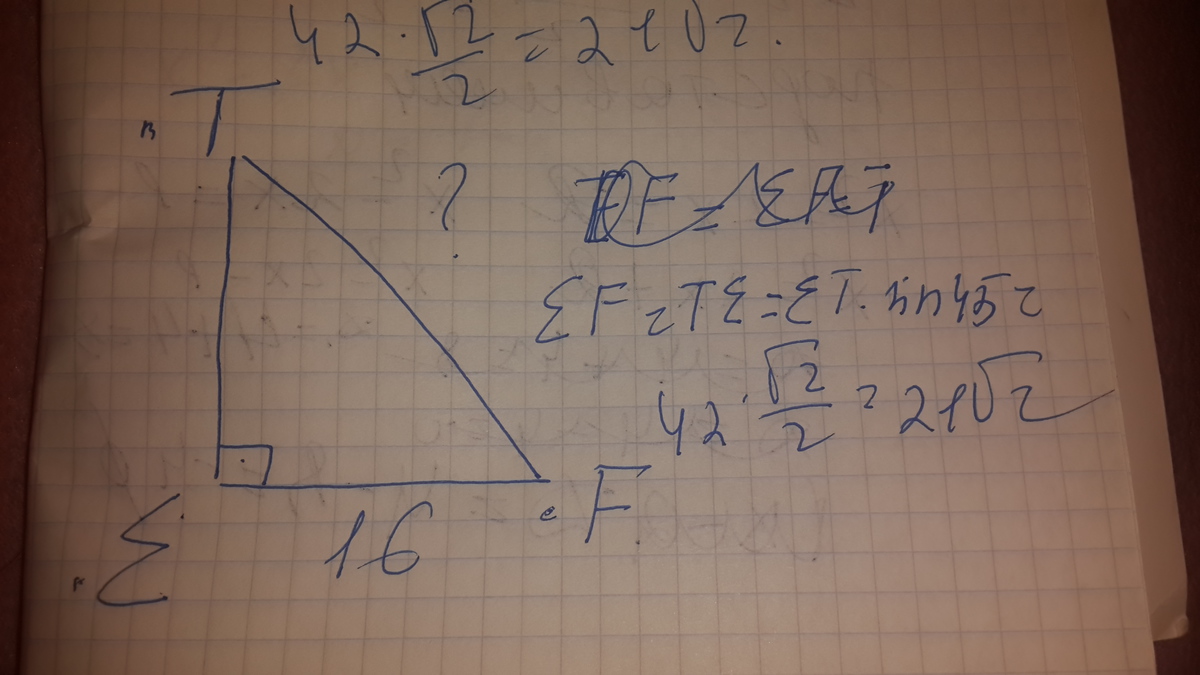 42 · √2/2 = 21√2.
T
в
?
ΣF = TΣ = ΣT · sin 45 =
42 · √2/2 = 21√2
Σ
16
с
F